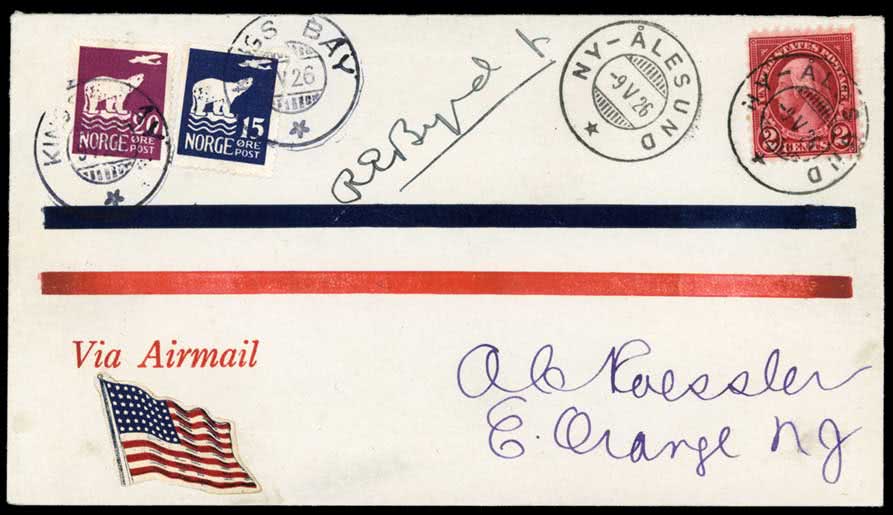 KINGS BAY
20
NORGE
ØRE
POST
15
NORGE
ØRE
POST
KINGS BAY
V 26
R E Byrd
NY-ÅLESUND
-9 V 26
UNITED STATES POSTAGE
2 CENTS 2
NY-ÅLESUND
-9 V 26
Via Airmail
A C Roessler
E. Orange NJ